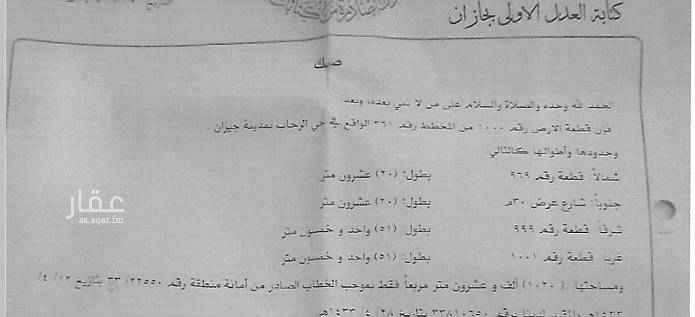 كتابة العدل الاولى بجازان
صك
الحمد لله وحده والصلاة والسلام على من لا نبي بعده، وبعد:
فإن قطعة الارض رقم ١٠٠٠ من المخطط رقم ٣٦١ الواقع في حي الرحاب بمدينة جيزان
وحدودها وأطوالها كالتالي
شمالاً: قطعة رقم ٩٦٩ بطول: (٢٠) عشرون متر
جنوباً: شارع عرض ٣٠م بطول: (٢٠) عشرون متر
شرقاً: قطعة رقم ٩٩٩ بطول: (٥١) واحد و خمسون متر
غربا: قطعة رقم ١٠٠١ بطول: (٥١) واحد و خمسون متر
ومساحتها: (١٠٢٠) ألف و عشرون متر مربعاً فقط بموجب الخطاب الصادر من أمانة منطقة رقم ٣٣/٢٢٥٥٠ بتاريخ
بتاريخ ١٤٣٣هـ
عقار
sa.aqar.fm